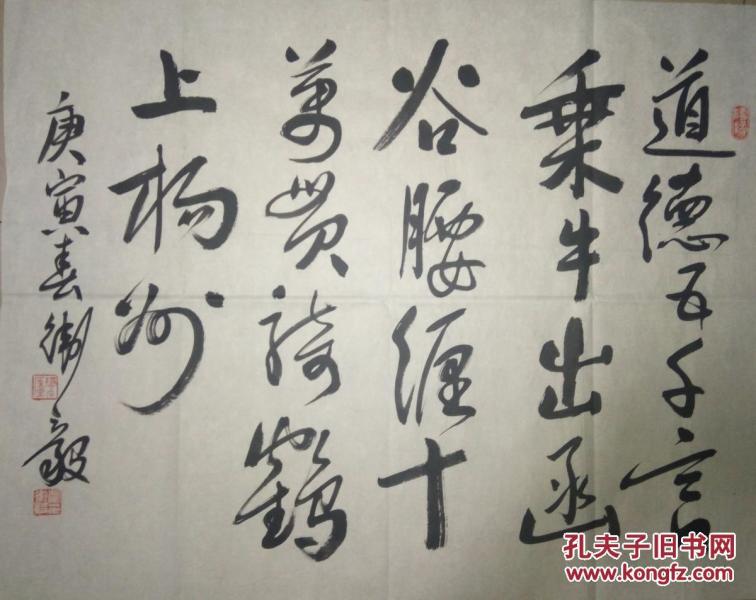 道德五千言
乘牛出函
谷腰缠十
万贯骑鹤
上杨州
庚寅春衛毅
孔夫子旧书网
www.kongfz.com